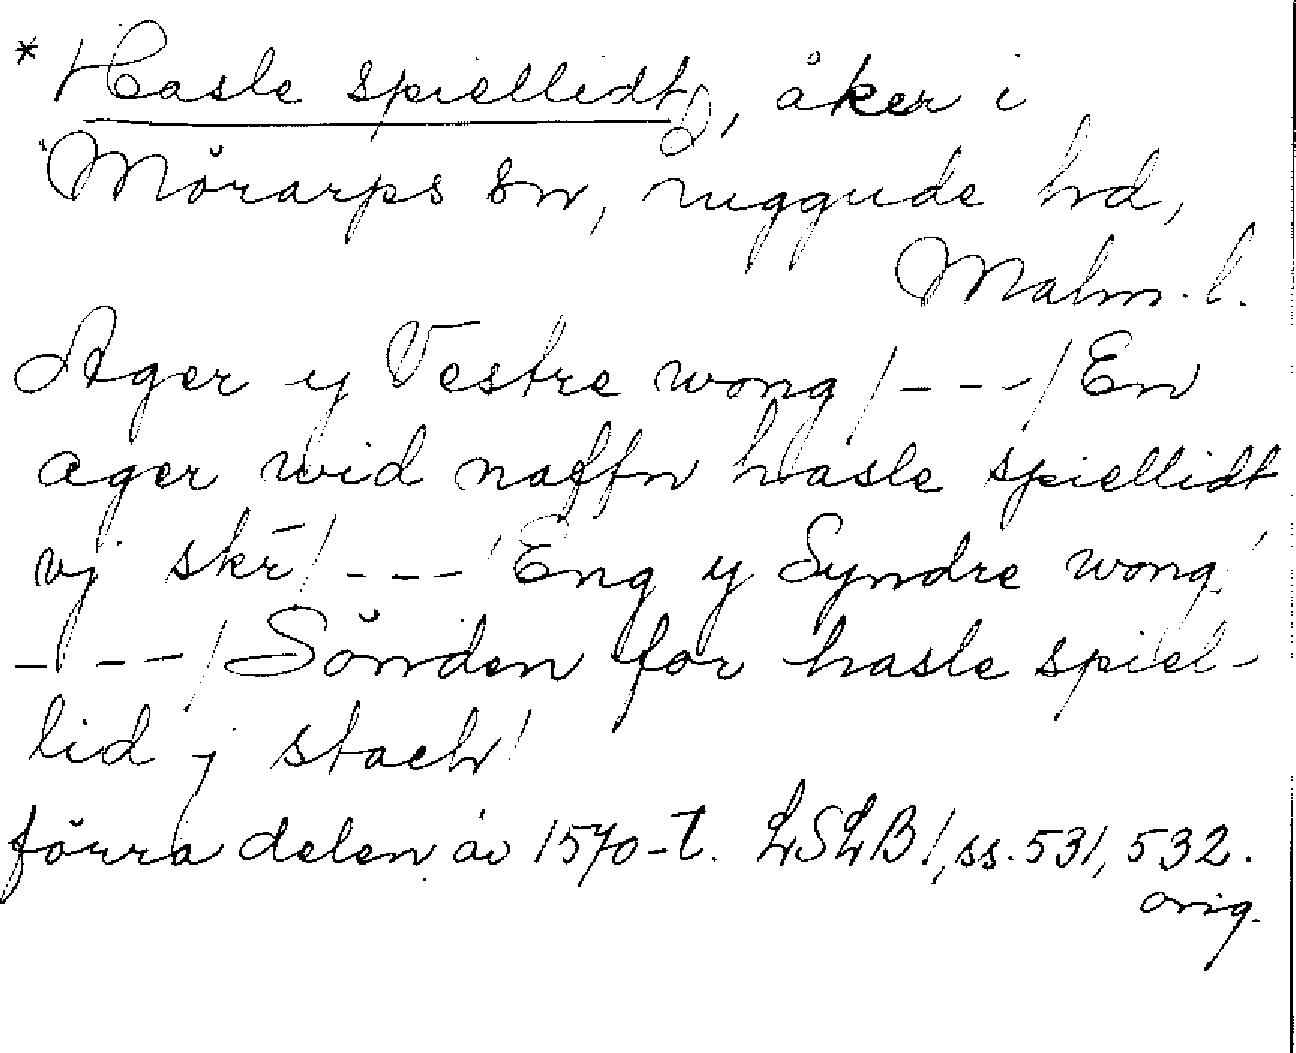 * Hasle spiellidt, åker i
Mörarps sn, Luggude hd,
Malm. l.
Ager y Vestre wong /---/ En
ager wid naffn hasle spiellidt
vj skr̄ /---/ Eng y Syndre wong /
---/ Sönden for hasle spiel-
lid j stach /
förra delen av 1570-t. LSLB 1, ss. 531, 532.
orig.